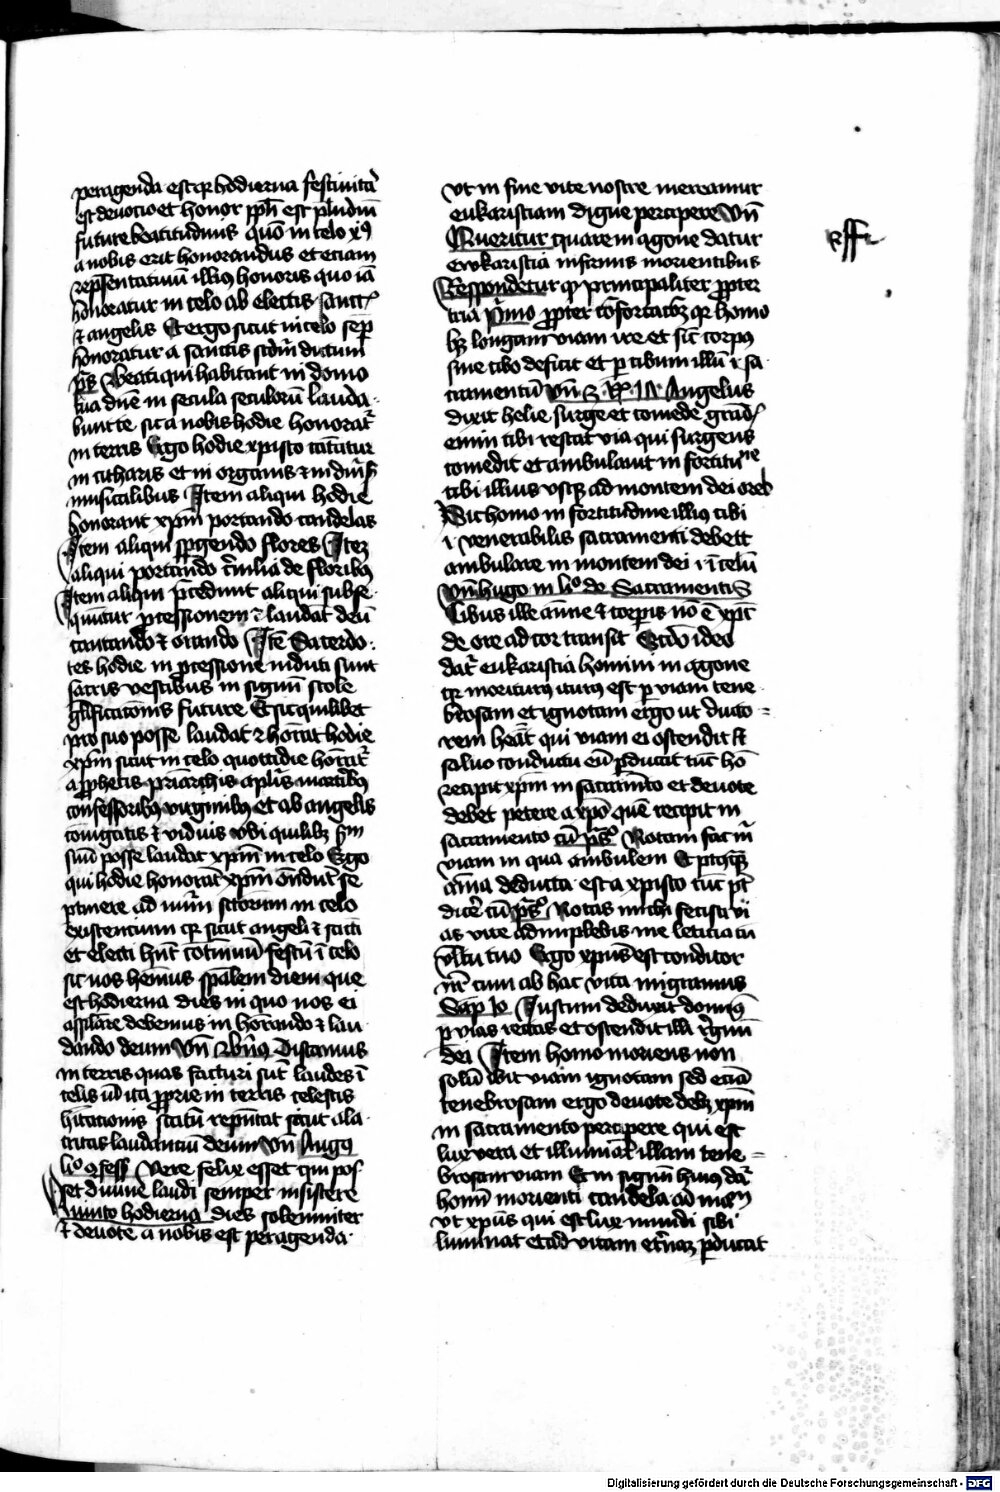 peragenda est qr hodierna festiuitas
est deuotio et honor pph est pludiu
future beatitudinis quo in celo xps
a nobis erit honorandus et etiam
repsentatiuu illius honoris quo ia
honoratur in celo ab electis sanctis
et angelis Et ergo sicut in celo semp
honoratur a sanctis scdm dictum
ps Beati qui habitant in domo
tua dne in secula seculoru lauda
bunt te sic a nobis hodie honorat
in terris Ergo hodie xpisto cantatur
in citharis et in organis et in diuss
musicalibus Item aliqui hodie
honorant xpm portando candelas
Item aliqui spgendo flores Item
aliqui portando de floribus
Item aliqui pcedunt aliqui subse
quutur pcessionem et laudat deu
cantando et orando Ite Sacerdo
tes hodie in pcessione induti sunt
sacris vestibus in signu stole
glificationis future Et sic quilibet
pro suo posse laudat et honorat hodie
xpm sicut in celo quottidie honorat
a pphetis priarchis aplis martiribus
confessoribus virginibus et ab angelis
coniugatis et viduis vbi quilibz scdm
suu posse laudat xpm in celo Ergo
qui hodie honorat xpm ondut se
ptinere ad num sctorum in celo
existencium qr sicut angeli et scti
et electi hnt continuu festu i celo
sic nos hemus spalem diem que
est hodierna dies in quo nos ei
assilare debemus in honorando et lau
dando deum Vn dus Discamus
in terris quas facturi sut laudes i
celis ita pprie in terris celestis
hitationis statu reputat sicut ala
critas laudanciu deum Vn Augus
lio 9fess Vere felix esset qui pos
set diuine laudi semper insistere
Quinto hodierna dies solemniter
et deuote a nobis est peragenda
vt in fine vite nostre mereamur
eukaristiam digne percipere Vn
Queritur quare in agone datur
eukaristia infirmis morientibus
Respondetur qr principaliter propter
tria Primo propter confortacoz qr homo
hz longam viam ire et sic corpus
sine cibo deficit et p cibum illu i sa
cramentu Vn 3 Angelus
dixit helie surge et comede grad
enim tibi restat via qui surgens
comedit et ambulauit in fortitudine
cibi illius vsqz ad montem dei oreb
Sic homo in fortitudine illius cibi
i venerabilis sacramenti debett
ambulare in montem dei i i celu
Vn hugo in lio de Sacramentis
Cibus ille anime et corpis no e xpc
de ore ad cor transit Scdo ideo
dat eukaristia homini in agone
qr moriturus iturus est p viam tene
brosam et ignotam ergo ut ducto
rem heat qui viam ei ostendit et
saluo conductu eu pducit tuc ho
recipit xpm in sacramento et deuote
debet petere a xpo que recipit in
sacramento cu ps Notam fac m
viam in qua ambulem Et
aima deducta est a xpisto tuc pt
dicere cu ps Notas michi fecisti vi
as vite adimplebis me leticia cu
vltu tuo Ergo xpus est conditor
nr cum ab hac vita migramus
Sap 10 Iustum deduxit dominus
p vias rectas et ostendit illi regnu
dei Item homo moriens non
solu ibit viam ignotam sed ecia
tenebrosam ergo deuote debz xpm
in sacramento percipere qui est
lux vera et illuminat illam tene
brosam viam Et in signu huius dat
homi morienti candela ad man
vt xpus qui est lux mundi sibi
luminat et ad vitam eternaz pducat
Digitalisierung gefördert durch die Deutsche Forschungsgemeinschaft - DFG